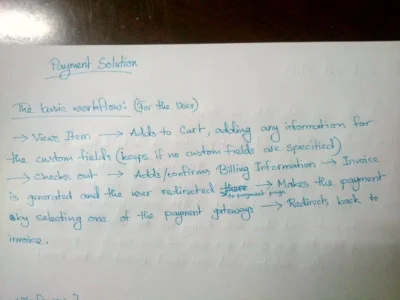 Payment Solution
The basic workflow: (for the user)
→ Views Item → Adds to Cart, adding any information for
the custom fields (keeps if no custom fields are specified)
→ Checks out → Adds/confirms Billing Information → Invoice
is generated and the user redirected to payment page → Makes the payment
by selecting one of the payment gateways → Redirects back to
invoice.